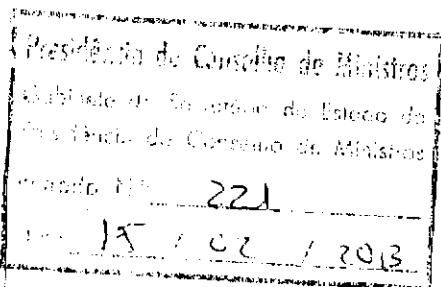 Presidência do Conselho de Ministros
Gabinete do Secretário de Estado da
Presidência do Conselho de Ministros
221
/ 02 / 2013